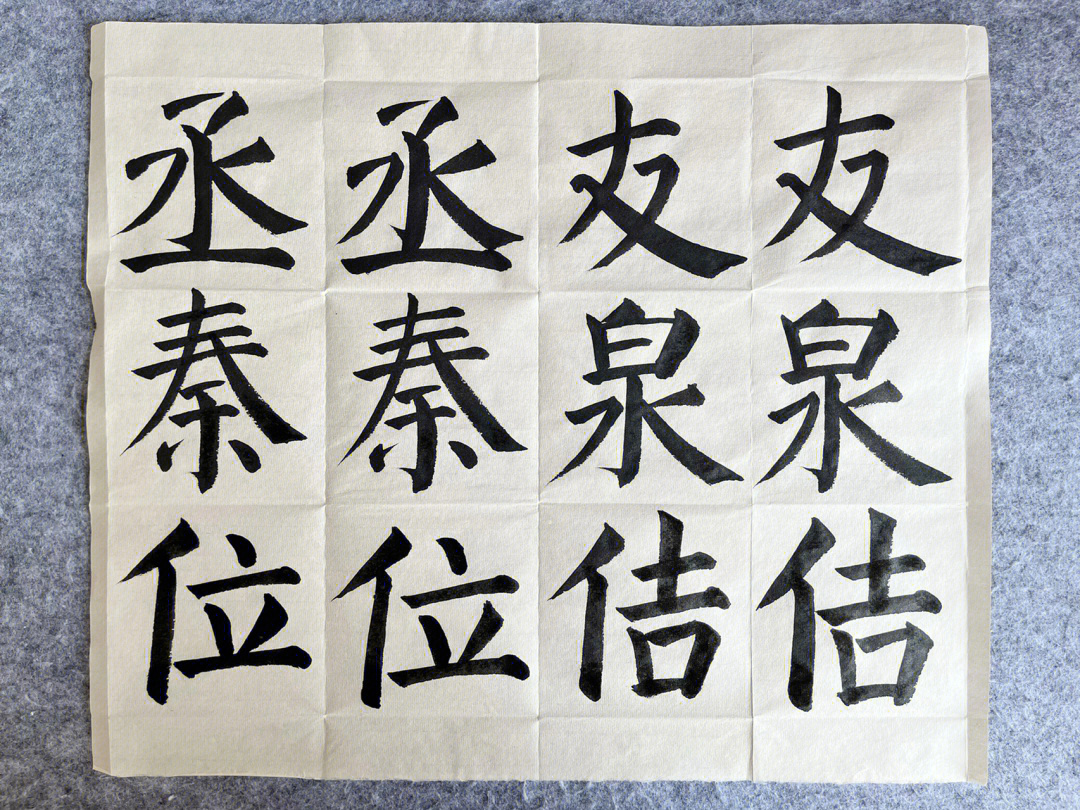 丞丞友友
秦秦泉泉
位位佶佶